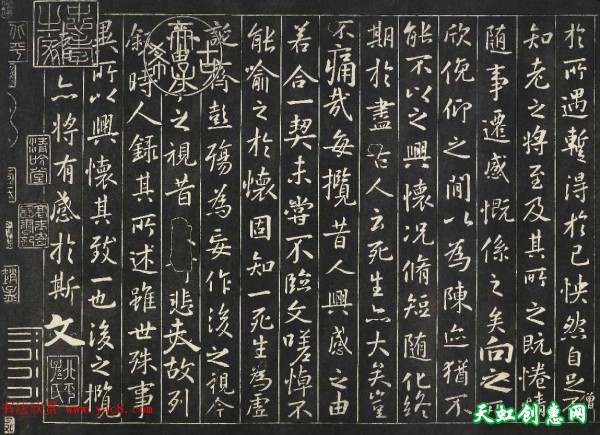 於所遇暫得於己怏然自足不
僧
知老之將至及其所之既惓情
隨事遷感慨係之矣向之所
欣俛仰之間以為陳迹猶不
能不以之興懷況脩短隨化終
期於盡古人云死生亦大矣豈
不痛哉每攬昔人興感之由
若合一契未嘗不臨文嗟悼不
能喻之於懷固知一死生為虛
誕齊彭殤為妄作後之視今
之視昔悲夫故列
敘時人錄其所述雖世殊事
異所以興懷其致一也後之攬
亦將有感於斯文
清吟堂
书法欣赏 www.yac8.com
天虹创意网